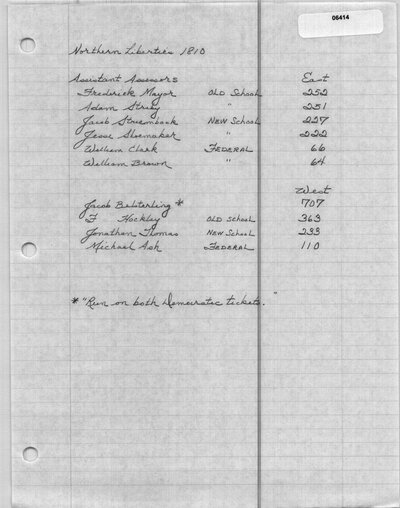 06414
Northern Liberties 1810
Assistant Assessors East
Frederick Mayor OLD School 252
Adam Strey " 251
Jacob Strembeck NEW School 227
Jesse Shoemaker " 222
William Clark FEDERAL 66
William Brown " 64
West
Jacob Belsterling * 707
F Hockley OLD School 363
Jonathan Thomas NEW School 233
Michael Ash FEDERAL 110
* "Run on both Democratic tickets."